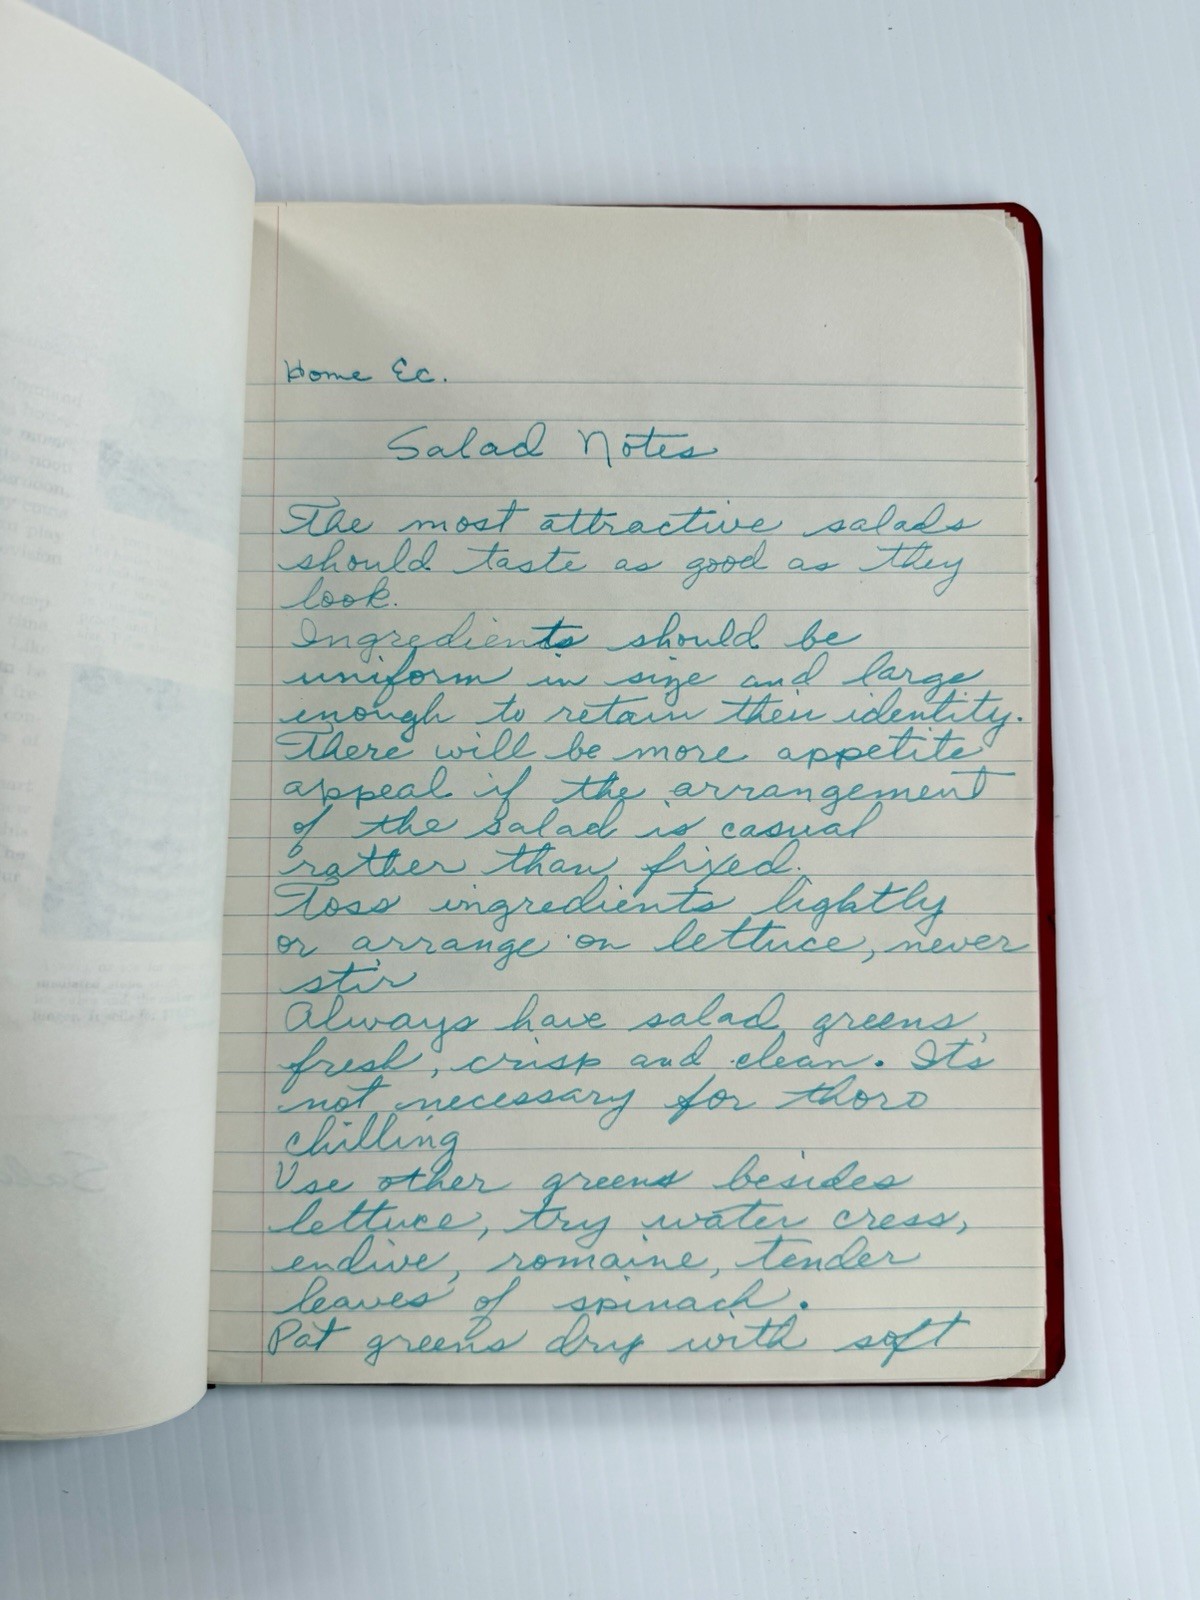 Home Ec.
Salad Notes
The most attractive salads
should taste as good as they
look.
Ingredients should be
uniform in size and large
enough to retain their identity.
There will be more appetite
appeal if the arrangement
of the salad is casual
rather than fixed.
Toss ingredients lightly
or arrange on lettuce, never
stir
Always have salad greens,
fresh, crisp and clean. It's
not necessary for thoro
chilling
Use other greens besides
lettuce, try water cress,
endive, romaine, tender
leaves of spinach.
Pat greens dry with soft